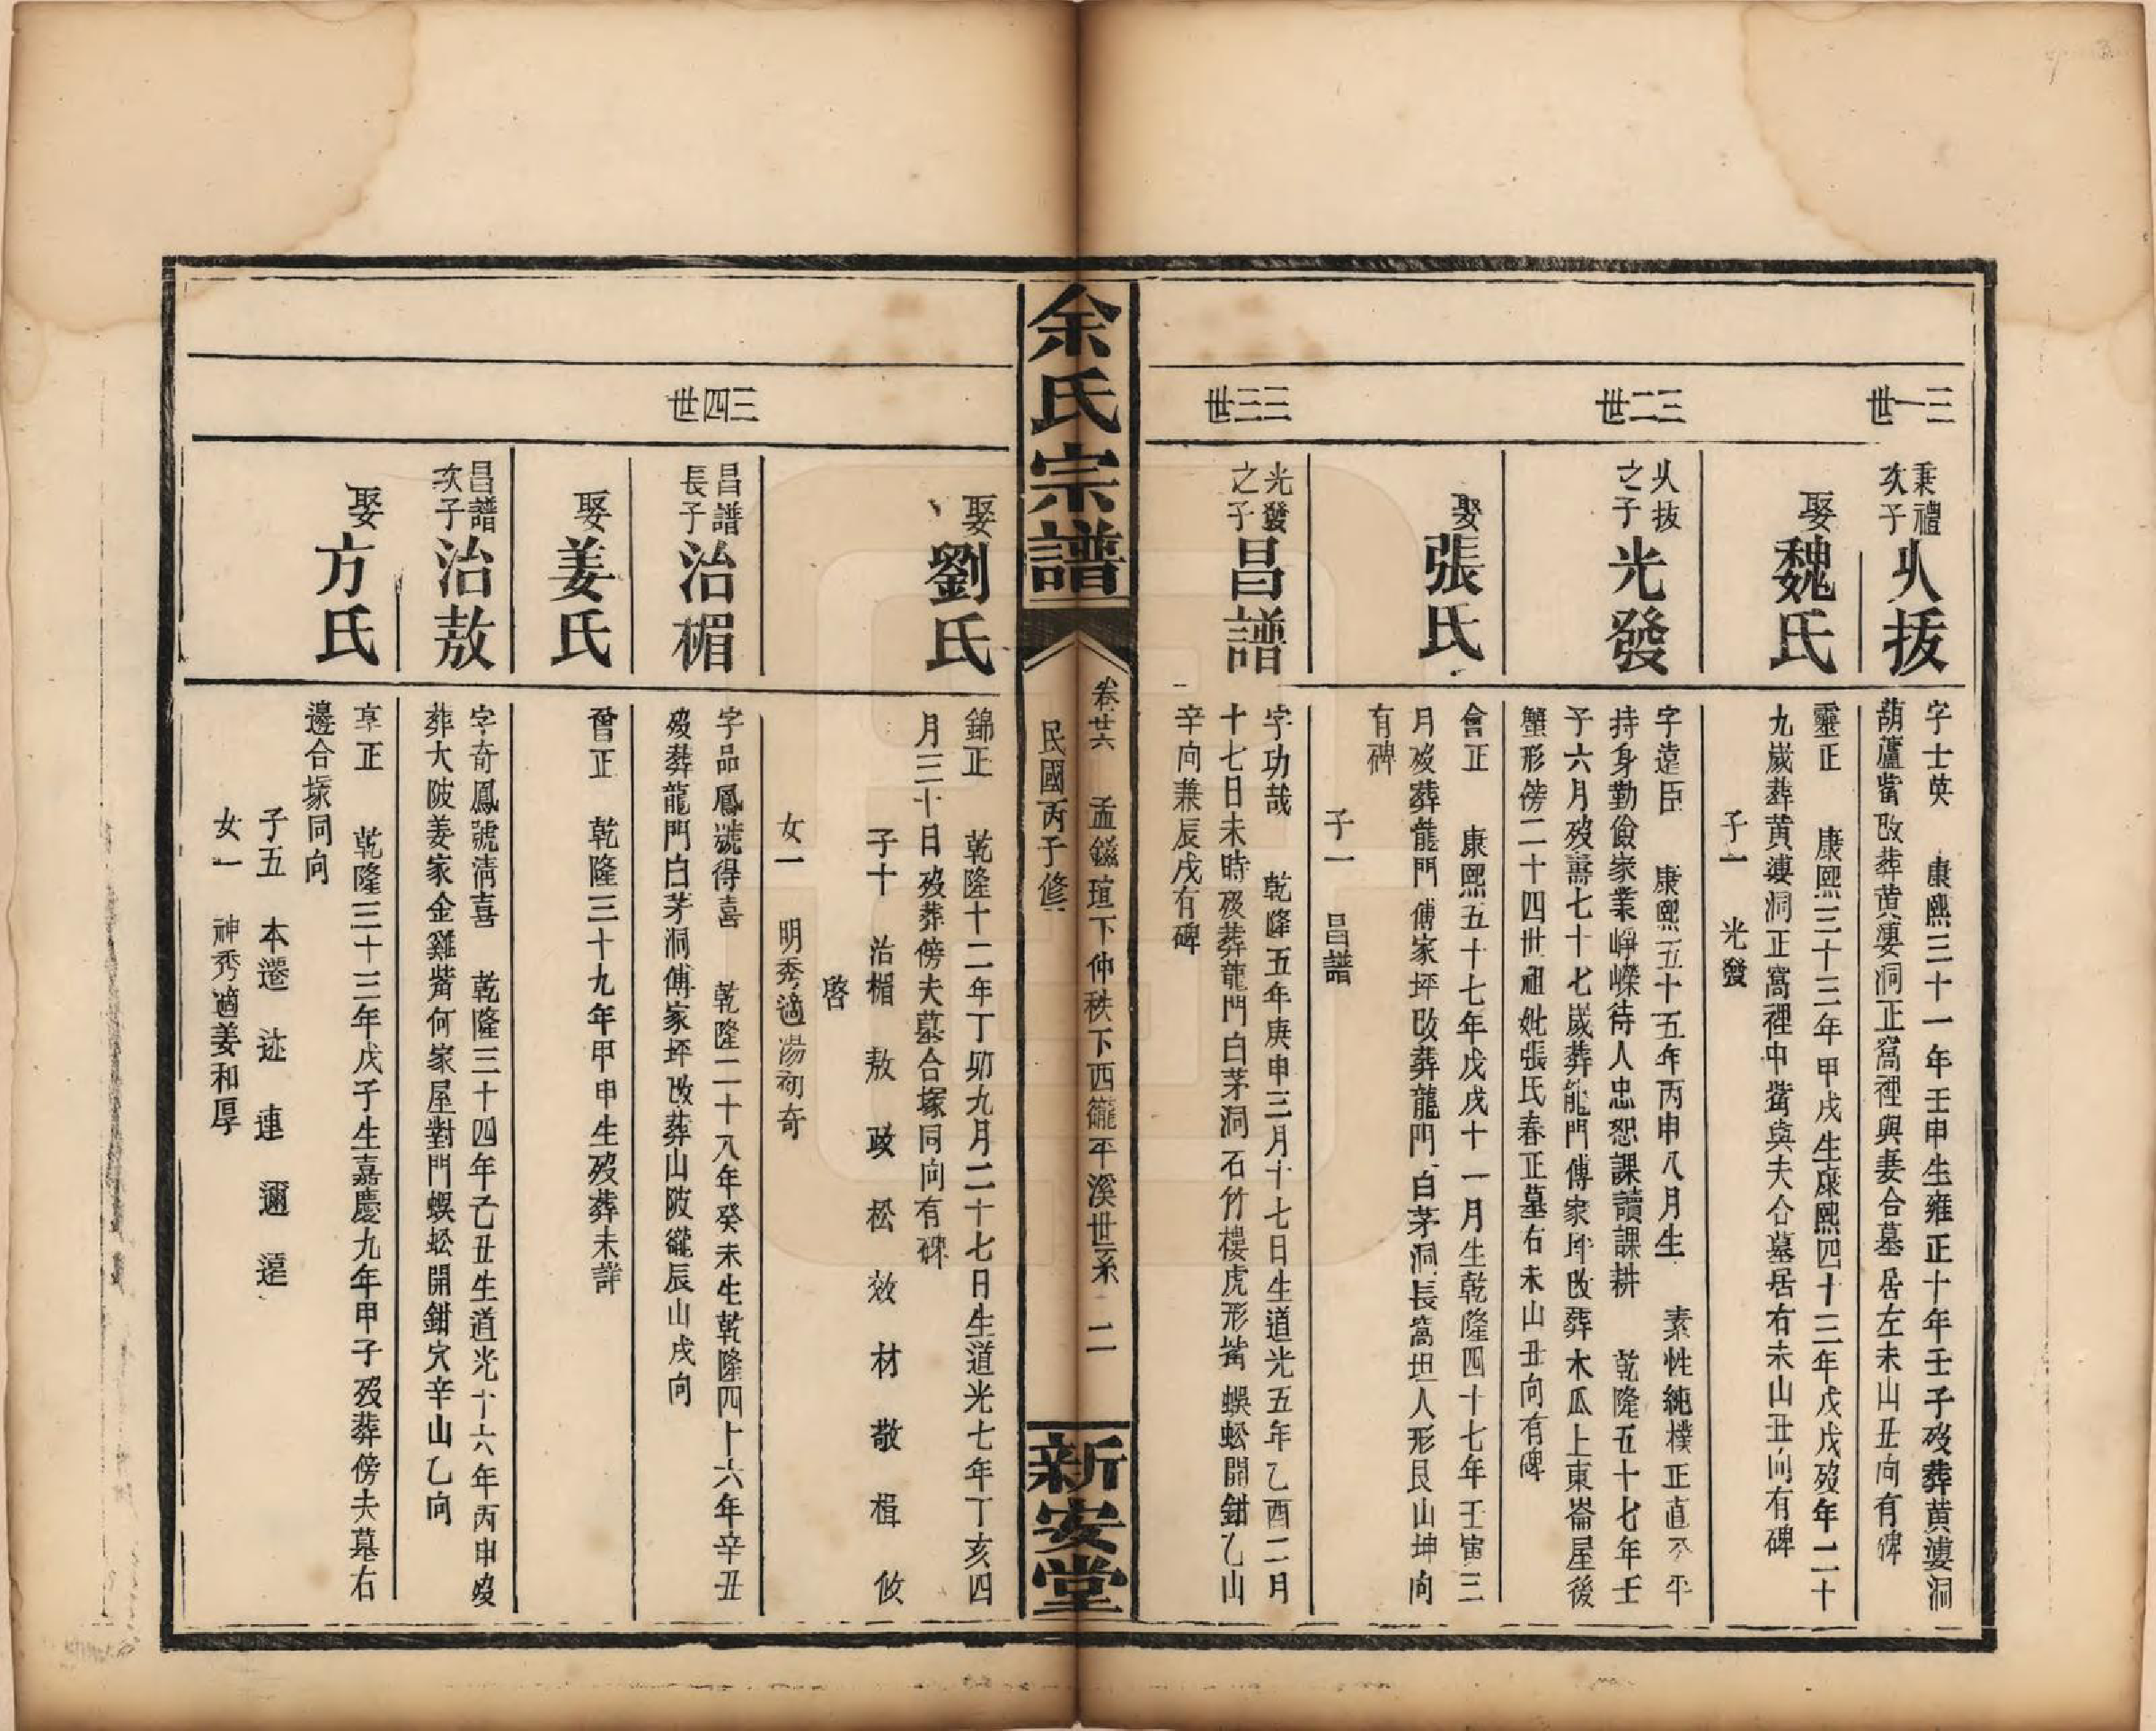 三一世
秉禮
次子
火拔
字士英　康熙三十一年壬申生雍正十年壬子歿葬黃漊洞
葫蘆嘴改葬黃漊洞正窩裡與妻合墓居左未山丑向有碑
娶魏氏
靈正　康熙三十三年甲戌生康熙四十三年戊戌歿年二十
九歲葬黃漊洞正窩裡中嘴與夫合墓居右未山丑向有碑
子一　光發
三二世
火拔
之子
光發
字遠臣　康熙五十五年丙申八月生　素性純樸正直不平
持身勤儉家業崢嶸待人忠恕課讀課耕　乾隆五十七年壬
子六月歿壽七十七歲葬龍門傅家坪改葬木瓜上東崙屋後
蟹形傍二十四世祖妣張氏春正墓右未山丑向有碑
娶張氏
會正　康熙五十七年戊戌十一月生乾隆四十七年壬寅三
月歿葬龍門傅家坪改葬龍門白茅洞長窩坦人形艮山坤向
有碑
子一　昌譜
三三世
光發
之子
昌譜
字功哉　乾隆五年庚申三月十七日生道光五年乙酉二月
十七日未時歿葬龍門白茅洞石竹樓虎形嘴蜈蚣開鉗乙山
辛向兼辰戌有碑
余氏宗譜
卷廿六　孟鎡瑄下仲秩下西隴平溪世系　二
民國丙子修
新安堂
娶劉氏
錦正　乾隆十二年丁卯九月二十七日生道光七年丁亥四
月三十日歿葬傍夫墓合塚同向有碑
子十　治楣　敖　政　松　效　材　敬　楫　攸
啓
女一　明秀適湯初奇
三四世
昌譜
長子
治楣
字品鳳號得喜　乾隆二十八年癸未生乾隆四十六年辛丑
歿葬龍門白茅洞傅家坪改葬山陂隴辰山戌向
娶姜氏
曾正　乾隆三十九年甲申生歿葬未詳
昌譜
次子
治敖
字奇鳳號清喜　乾隆三十四年己丑生道光十六年丙申歿
葬大陂姜家金雞嘴何家屋對門蜈蚣開鉗穴辛山乙向
娶方氏
享正　乾隆三十三年戊子生嘉慶九年甲子歿葬傍夫墓右
邊合塚同向
子五　本遷　迹　連　邇　逞
女一　神秀適姜和厚